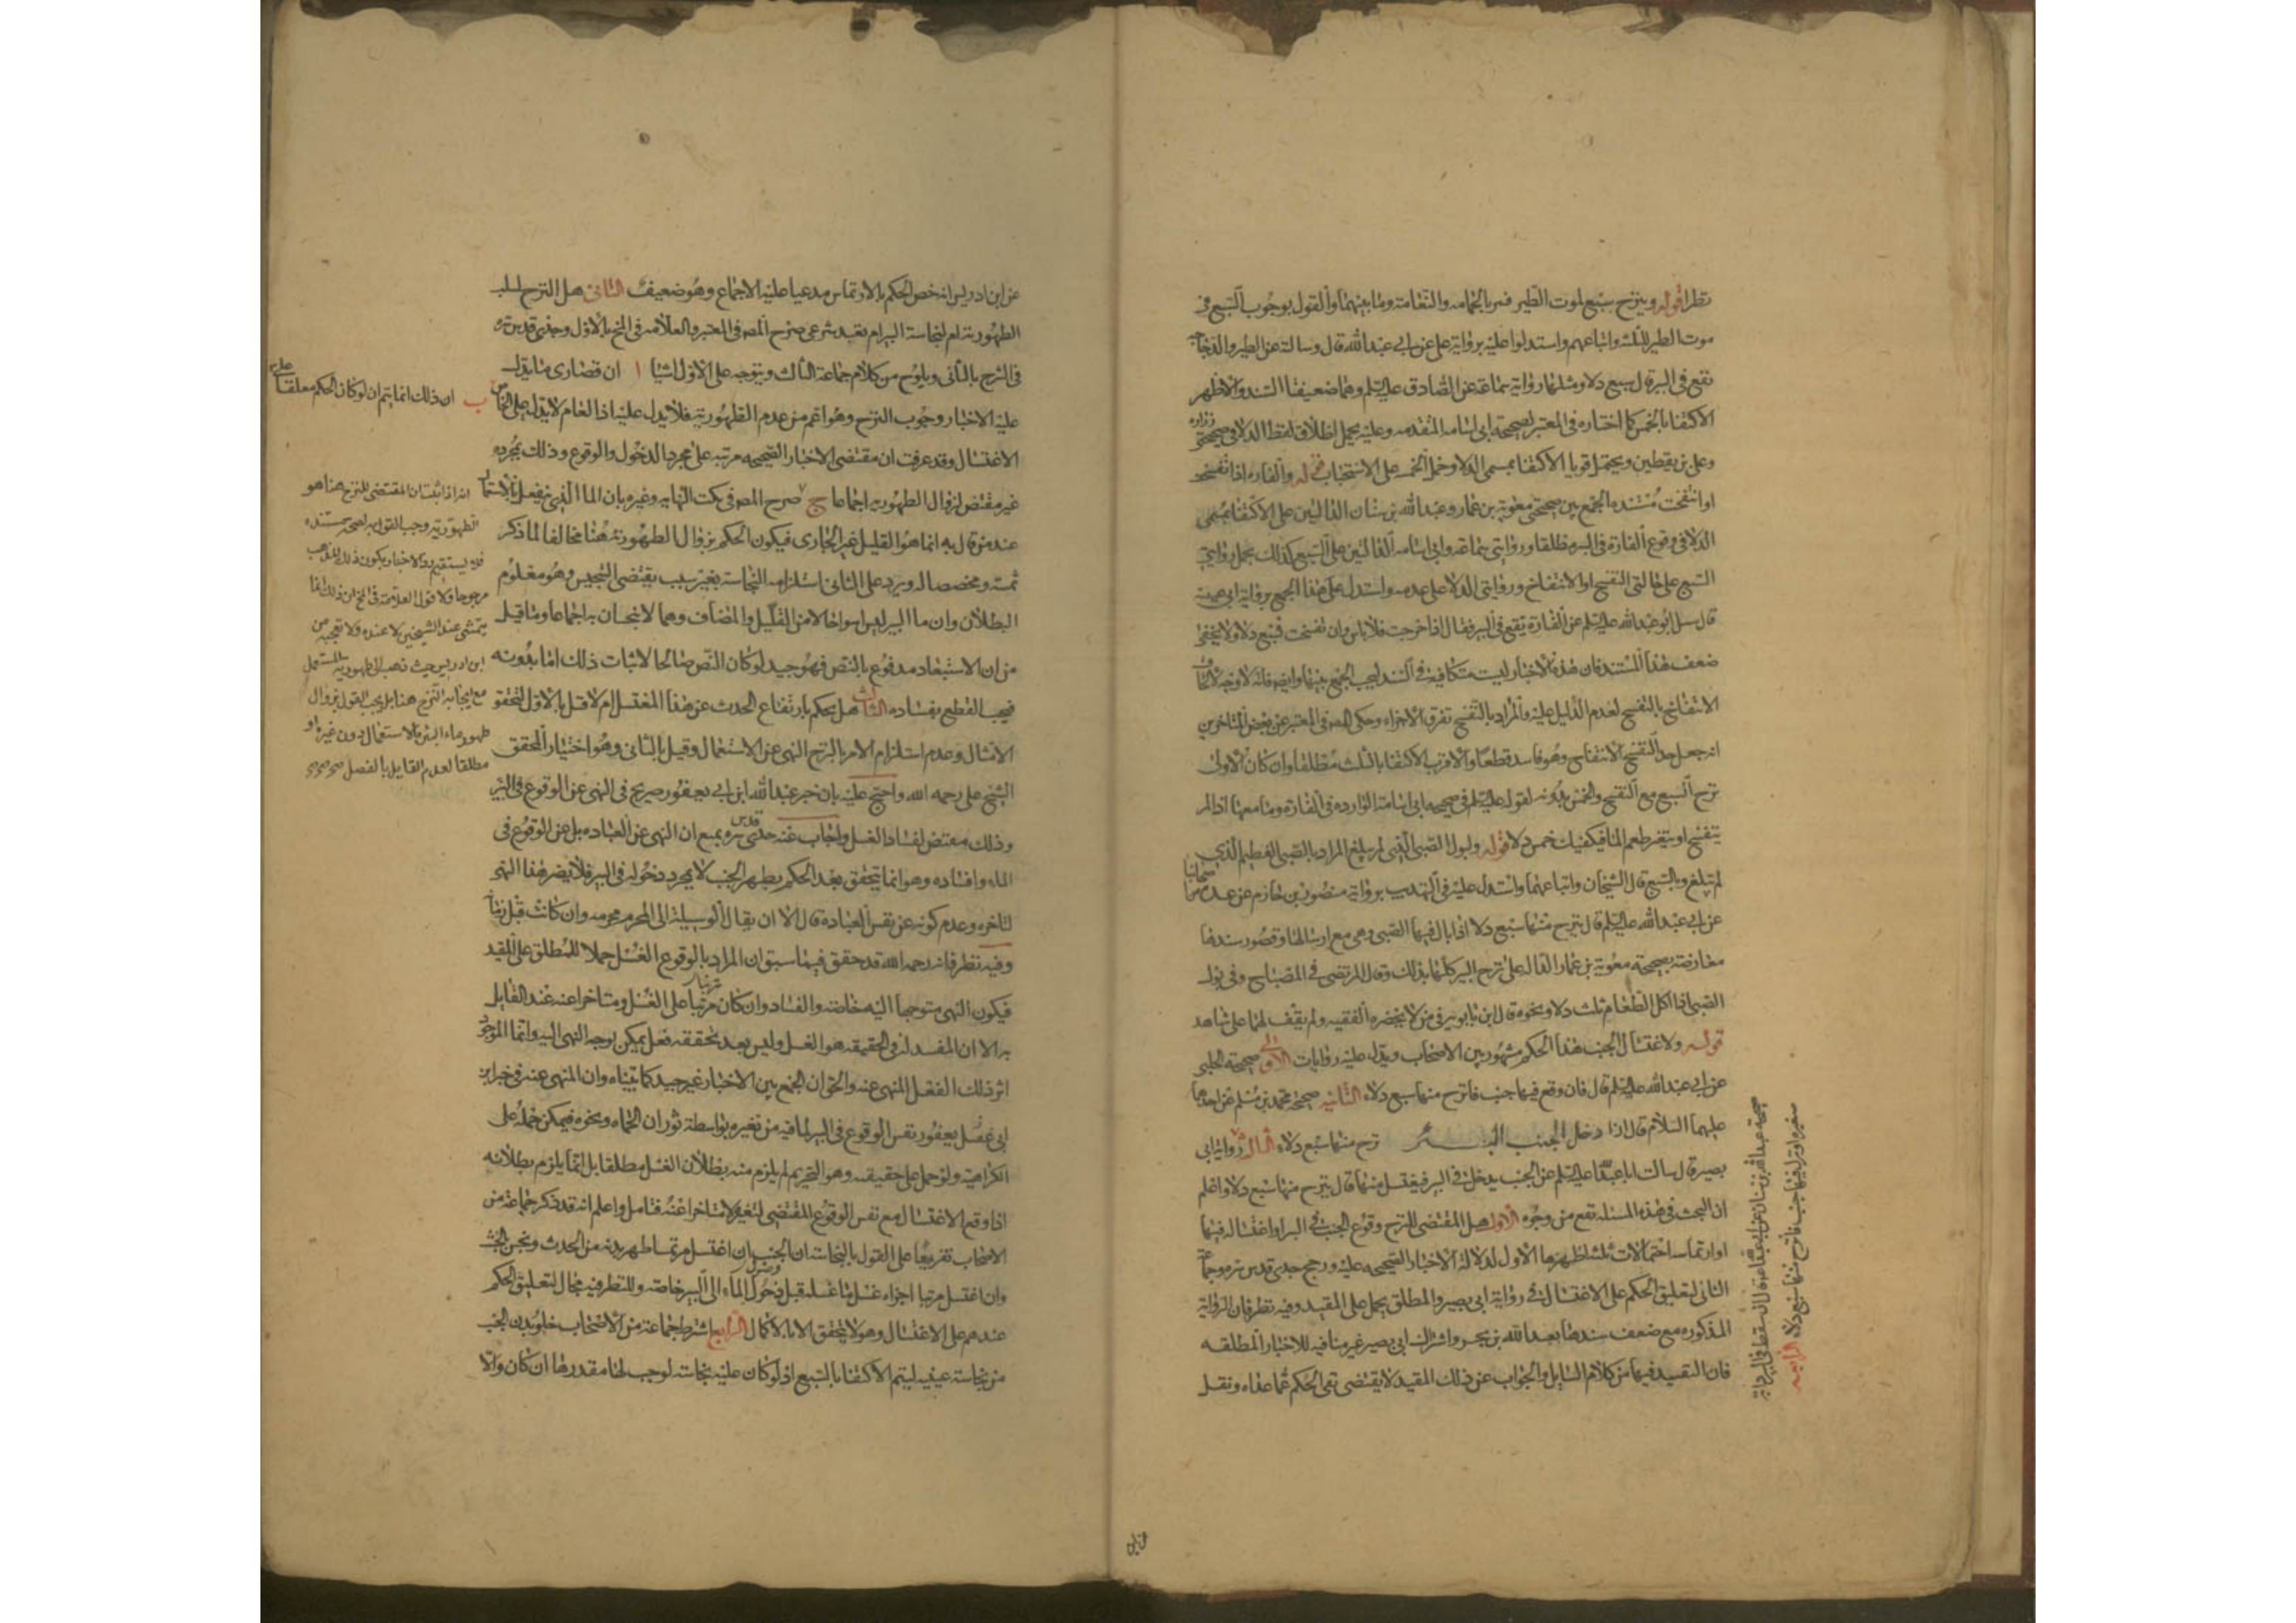 نظرا قوله وينزح سبع لموت الطير فسر بالحمامه والنعامة وما بينهما والقول بوجوب السبع في
موت الطير للثلثه واتباعهم واستدلوا عليه برواية علي عن ابي عبد الله قال وسالته عن الطير والدجاجة
تقع في البير قال سبع دلاء ومثلها رواية سماعه عن الصادق عليه السلم وهما ضعيفتا السند والاظهر
الاكتفا بالخمس كما اختاره في المعتبر لصحيحه ابي اسامه المتقدمه وعليه يحمل اطلاق لفظ الدلاء في صحيحتي زراره
وعلي بن يقطين ويحتمل قويا الاكتفا بمسمى الدلاء وحمل الخمس على الاستحباب قوله والفاره اذا تفسخت
او انتفخت مستنده الجمع بين صحيحتي معوية بن عمار وعبد الله بن سنان الدالتين على الاكتفا بمسمى
الدلاء في وقوع الفارة في البير مطلقا وروايتي سماعه وابي اسامه الدالتين على السبع كذلك بحمل روايتي
السبع على حالتي التفسخ او الانتفاخ وروايتي الدلاء على عدمه واستدل على هذا الجمع برواية ابي عيينة
قال سئل ابو عبد الله عليه السلم عن الفارة تقع في البير فقال اذا خرجت فلا باس وان تفسخت فسبع دلاء ولا يخفى
ضعف هذا المستند فان هذه الاخبار ليست متكافية في السند ليجب الجمع بينها وايضا فانه لا وجه لالحاق
الانتفاخ بالتفسخ لعدم الدليل عليه والمراد بالتفسخ تفرق الاجزاء وحكى المص في المعتبر عن بعض المتاخرين
انه جعل حد التفسخ الانتفاخ وهو فاسد قطعا والاقرب الاكتفا بالثلث مطلقا وان كان الاولى
نزح السبع مع التفسخ والخمس بدونه لقوله عليه السلم في صحيحه ابي اسامة الوارده في الفارة وما معها اذا لم
يتفسخ او يتغير طعم الماء فيكفيك خمس دلاء قوله ولبول الصبي الذي لم يبلغ المراد بالصبي الفطيم الذي
لم يبلغ وبالسبع قال الشيخان واتباعهما واستدل عليه في التهذيب برواية منصور بن حازم عن عدة من اصحابنا
عن ابي عبد الله عليه السلم قال ينزح منها سبع دلاء اذا بال فيها الصبي وهي مع ارسالها وقصور سندها
معارضة بصحيحة معوية بن عمار الدالة على نزح البير كلها بذلك وقال المرتضى في المصباح وفي بول
الصبي اذا اكل الطعام ثلث دلاء ونحوه قال ابن بابويه في من لا يحضره الفقيه ولم يقف لهما على شاهد
قوله ولاغتسال الجنب هذا الحكم مشهور بين الاصحاب ويدل عليه روايات الاولى صحيحه الحلبي
عن ابي عبد الله عليه السلم قال فان وقع فيها جنب فانزح منها سبع دلاء الثانيه صحيحة محمد بن مسلم عن احدهما
عليهما السلام قال اذا دخل الجنب البئر نزح منها سبع دلاء الثالثة رواية ابي
بصير قال سالت ابا عبد الله عليه السلم عن الجنب يدخل في البير فيغتسل منها قال ينزح منها سبع دلاء واعلم
ان البحث في هذه المسئله تقع من وجوه الاول هل المقتضي للنزح وقوع الجنب في البير او اغتساله فيها
او ارتماسه احتمالات ثلثه اظهرها الاول لدلالة الاخبار الصحيحه عليه ورجح جدي قدس سره
الثاني لتعليق الحكم على الاغتسال في رواية ابي بصير والمطلق يحمل على المقيد وفيه نظر فان الرواية
المذكوره مع ضعف سندها بعبد الله بن بحر واشتراك ابي بصير غير منافيه للاخبار المطلقه
فان التقييد فيها من كلام السايل والجواب عن ذلك المقيد لا يقتضي نفي الحكم عما عداه ونقل
صحيحة عبد الله بن سنان عن ابي عبد الله ع قال ان سقط في البير دابة
صغيرة او نزل فيها جنب فانزح منها سبع دلاء الرابعه
عن ابن ادريس انه خص الحكم بالارتماس مدعيا عليه الاجماع وهو ضعيف الثاني هل النزح لسلب
الطهورية ام لنجاسة البير ام تعبد شرعي صرح المص في المعتبر والعلامه في المخ بالاول وجدي قدس سره
في الشرح بالثاني ويلوح من كلام جماعة الثالث ويتوجه على الاول اشيا ا ان قصارى ما يدل
عليه الاخبار وجوب النزح وهو اعم من عدم الطهورية فلا يدل عليه اذ العام لا يدل على الخاص ب ان ذلك انما يتم ان لو كان الحكم معلقا على
الاغتسال وقد عرفت ان مقتضى الاخبار الصحيحه مرتبه على مجرد الدخول والوقوع وذلك بمجرده
غير مقتض لزوال الطهوريه اجماعا ج صرح المص في نكت النهايه وغيره بان الماء الذي ينفعل بالاستعمال
عند من قال به انما هو القليل غير الجاري فيكون الحكم بزوال الطهورية هنا مخالفا لما ذكر
ثمة ومخصصا له ويرد على الثاني استلزامه النجاسة بغير سبب يقتضي التنجيس وهو معلوم
البطلان وان ماء البير ليس اسوا حالا من القليل والمضاف وهما لا ينجسان به اجماعا وما قيل
من ان الاستبعاد مدفوع بالنص فهو جيد لو كان النص صالحا لاثبات ذلك اما بدونه
فيجب القطع بفساده الثالث هل يحكم بارتفاع الحدث عن هذا المغتسل ام لا قيل بالاول لتحقق
الامتثال وعدم استلزام الامر بالنزح النهي عن الاستعمال وقيل بالثاني وهو اختيار المحقق
الشيخ علي رحمه الله واحتج عليه بان خبر عبد الله ابن ابي يعفور صريح في النهي عن الوقوع في البير
وذلك مقتض لفساد الغسل واجاب عنه جدي قدس سره بمنع ان النهي عن العباده بل عن الوقوع في
الماء وافساده وهو انما يتحقق بعد الحكم بطهر الجنب لا بمجرد دخوله في البير فلا يضر هذا النهي
لتاخره وعدم كونه عن نفس العبادة قال الا ان يقال الوسيلة الى المحرم محرمه وان كانت قبل زمانه
وفيه نظر فانه رحمه الله قد حقق فيما سبق ان المراد بالوقوع الغسل حملا للمطلق على المقيد
فيكون النهي متوجها اليه خاصة والفساد وان كان مرتبا على الغسل ومتاخرا عنه عند القايل
به الا ان المفسد له في الحقيقه هو الغسل وليس بعد تحققه فعل يمكن توجه النهي اليه وانما الموجود
اثر ذلك الفعل المنهي عنه والحق ان الجمع بين الاخبار غير جيد كما بيناه وان المنهي عنه في خبر ابن
ابي يعفور نفس الوقوع في البير لما فيه من تغيره بواسطة ثوران الحماه ونحوه فيمكن حمله على
الكراهية ولو حمل على حقيقته وهو التحريم لم يلزم منه بطلان الغسل مطلقا بل انما يلزم بطلانه
اذا وقع الاغتسال مع نفس الوقوع المقتضي لتغيره لا متاخرا عنه فتامل واعلم انه قد ذكر جماعة من
الاصحاب تفريعا على القول بالنجاسة ان الجنب ان اغتسل مرتمسا طهر بدنه من الحدث ونجس بالخبث
وان اغتسل مرتبا اجزاه غسل ما غسله قبل وصول الماء الى البير خاصة وللنظر فيه مجال لتعليق الحكم
عندهم على الاغتسال وهو لا يتحقق الا بالاكمال الرابع اشترط جماعة من الاصحاب خلو بدن الجنب
من نجاسة عينيه ليتم الاكتفا بالسبع اذ لو كان عليه نجاسة لوجب لها مقدرها ان كان والا
انه اذا ثبت ان المقتضي للنزح هنا هو
الطهورية وجب القول به لصحة مستنده
فلا يستقيم رد الاخبار بكون ذلك المذهب
مرجوحا ولا قول العلامة في المخ ان ذلك انما
يتمشى عند الشيخين لا عنده ولا تعجبه من
ابن ادريس حيث ذهب الى طهورية المستعمل
مع ايجابه النزح هنا بل يجب القول بزوال
طهور ماء البئر بالاستعمال دون غيره او
مطلقا لعدم القايل بالفصل